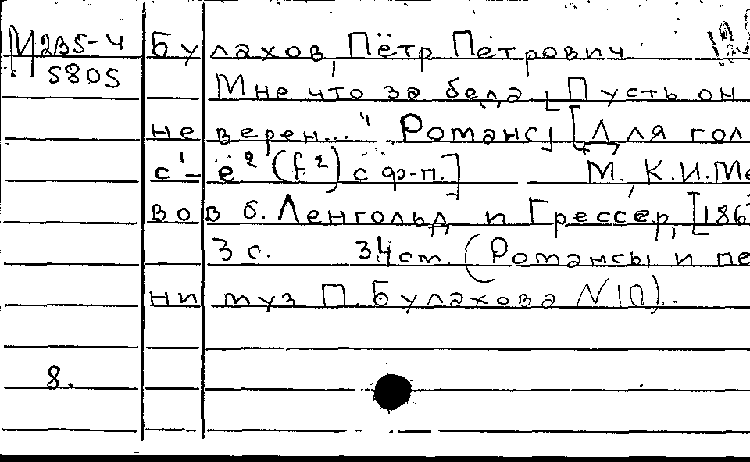 М 2В5-4 Булахов, Пётр Петрович
5805 Мне что за беда [Пусть он
не верен..." Романс] [Для гол
с¹-е² (f²) с ф-п.] М., К.И.Ме
вов б. Ленгольд и Грессер, [186
3 с. 34 cm. (Романсы и пе
ни муз П. Булахова N 10).
8.